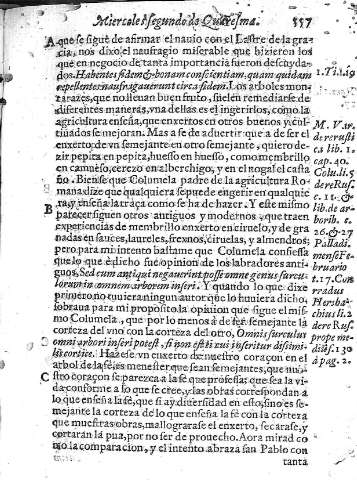 Miercoles segundo de Quaresma. 557
A que se sigue de afirmar el nauio con el Lastre de la gra-
cia, nos dixo el naufragio miserable que hizieron los
que en negocio de tanta importancia fueron descuyda-
dos. Habentes fidem & bonam conscientiam, quam quidam
repellentes naufragauerunt circa fidem. Los arboles mon-
tarazes, que no lleuan buen fruto, suelen remediarse de
diferentes maneras, vna dellas es el ingerirlos, como la
agricultura enseña, que enxertos en otros buenos y cul-
tiuados se mejoran. Mas a se de aduertir que a de ser el
enxerto de vn semejante en otro semejante, quiero de-
zir pepita en pepita, huesso en huesso, como membrillo
en camueso, cerezo en alberchigo, y en el nogal el casta
ño. Bien se que Columela padre de la agricultura Ro-
mana dize que qualquiera se puede engerir en qualquie-
ra, y enseña la traça como se ha de hazer. Y este mismo
B parecer siguen otros antiguos y modernos, que traen
experiencias de membrillo enxerto en ciruelo, y de gra-
nadas en sauces, laureles, frexnos, ciruelas, y almendros;
pero para mi intento bastame que Columela confiessa
que lo que è dicho fue opinion de los labradores anti-
guos, Sed cum antiqui negauerint posse omne genus surcu-
lorum in omnem arborem inseri. Y quando lo que dixe
primero no tuuiera ningun autor que lo huuiera dicho,
sobraua para mi proposito la opinion que sigue el mis-
mo Columela, que por lo menos à de ser semejante la
corteza del vno con la corteza del otro, Omnis surculus
omni arbori inseri potest, si non est ei cui inseritur dissimi-
lis cortice. Hazese vn enxerto de nuestro coraçon en el
arbol de la fè, es menester que sean semejantes, que nue-
C stro coraçon se parezca a la fè que professa; que sea la vi-
da conforme a lo que se cree, y las obras correspondan a
lo que enseña la fè, que si ay diuersidad en esto, sino es se-
mejante la corteza de lo que enseña la fè con la corteza
que muestras obras, mallograrase el enxerto, secarase, y
cortarán la pua, por no ser de prouecho. Aora mirad co
mo la comparacion, y el intento abraza san Pablo con
tanta
1. Ti. 1. 19
M. Var.
de re rusti
ca lib. 1.
cap. 40.
Colu. li. 5
de re Rus.
c. 11. &
lib. de ar-
borib. c.
26. & 27
Palladi.
mense Fe-
bruario
t. 17. Con
radus
Hersba-
chius li. 2
de re Rus.
prope me-
dium. 130
à pag. 2.